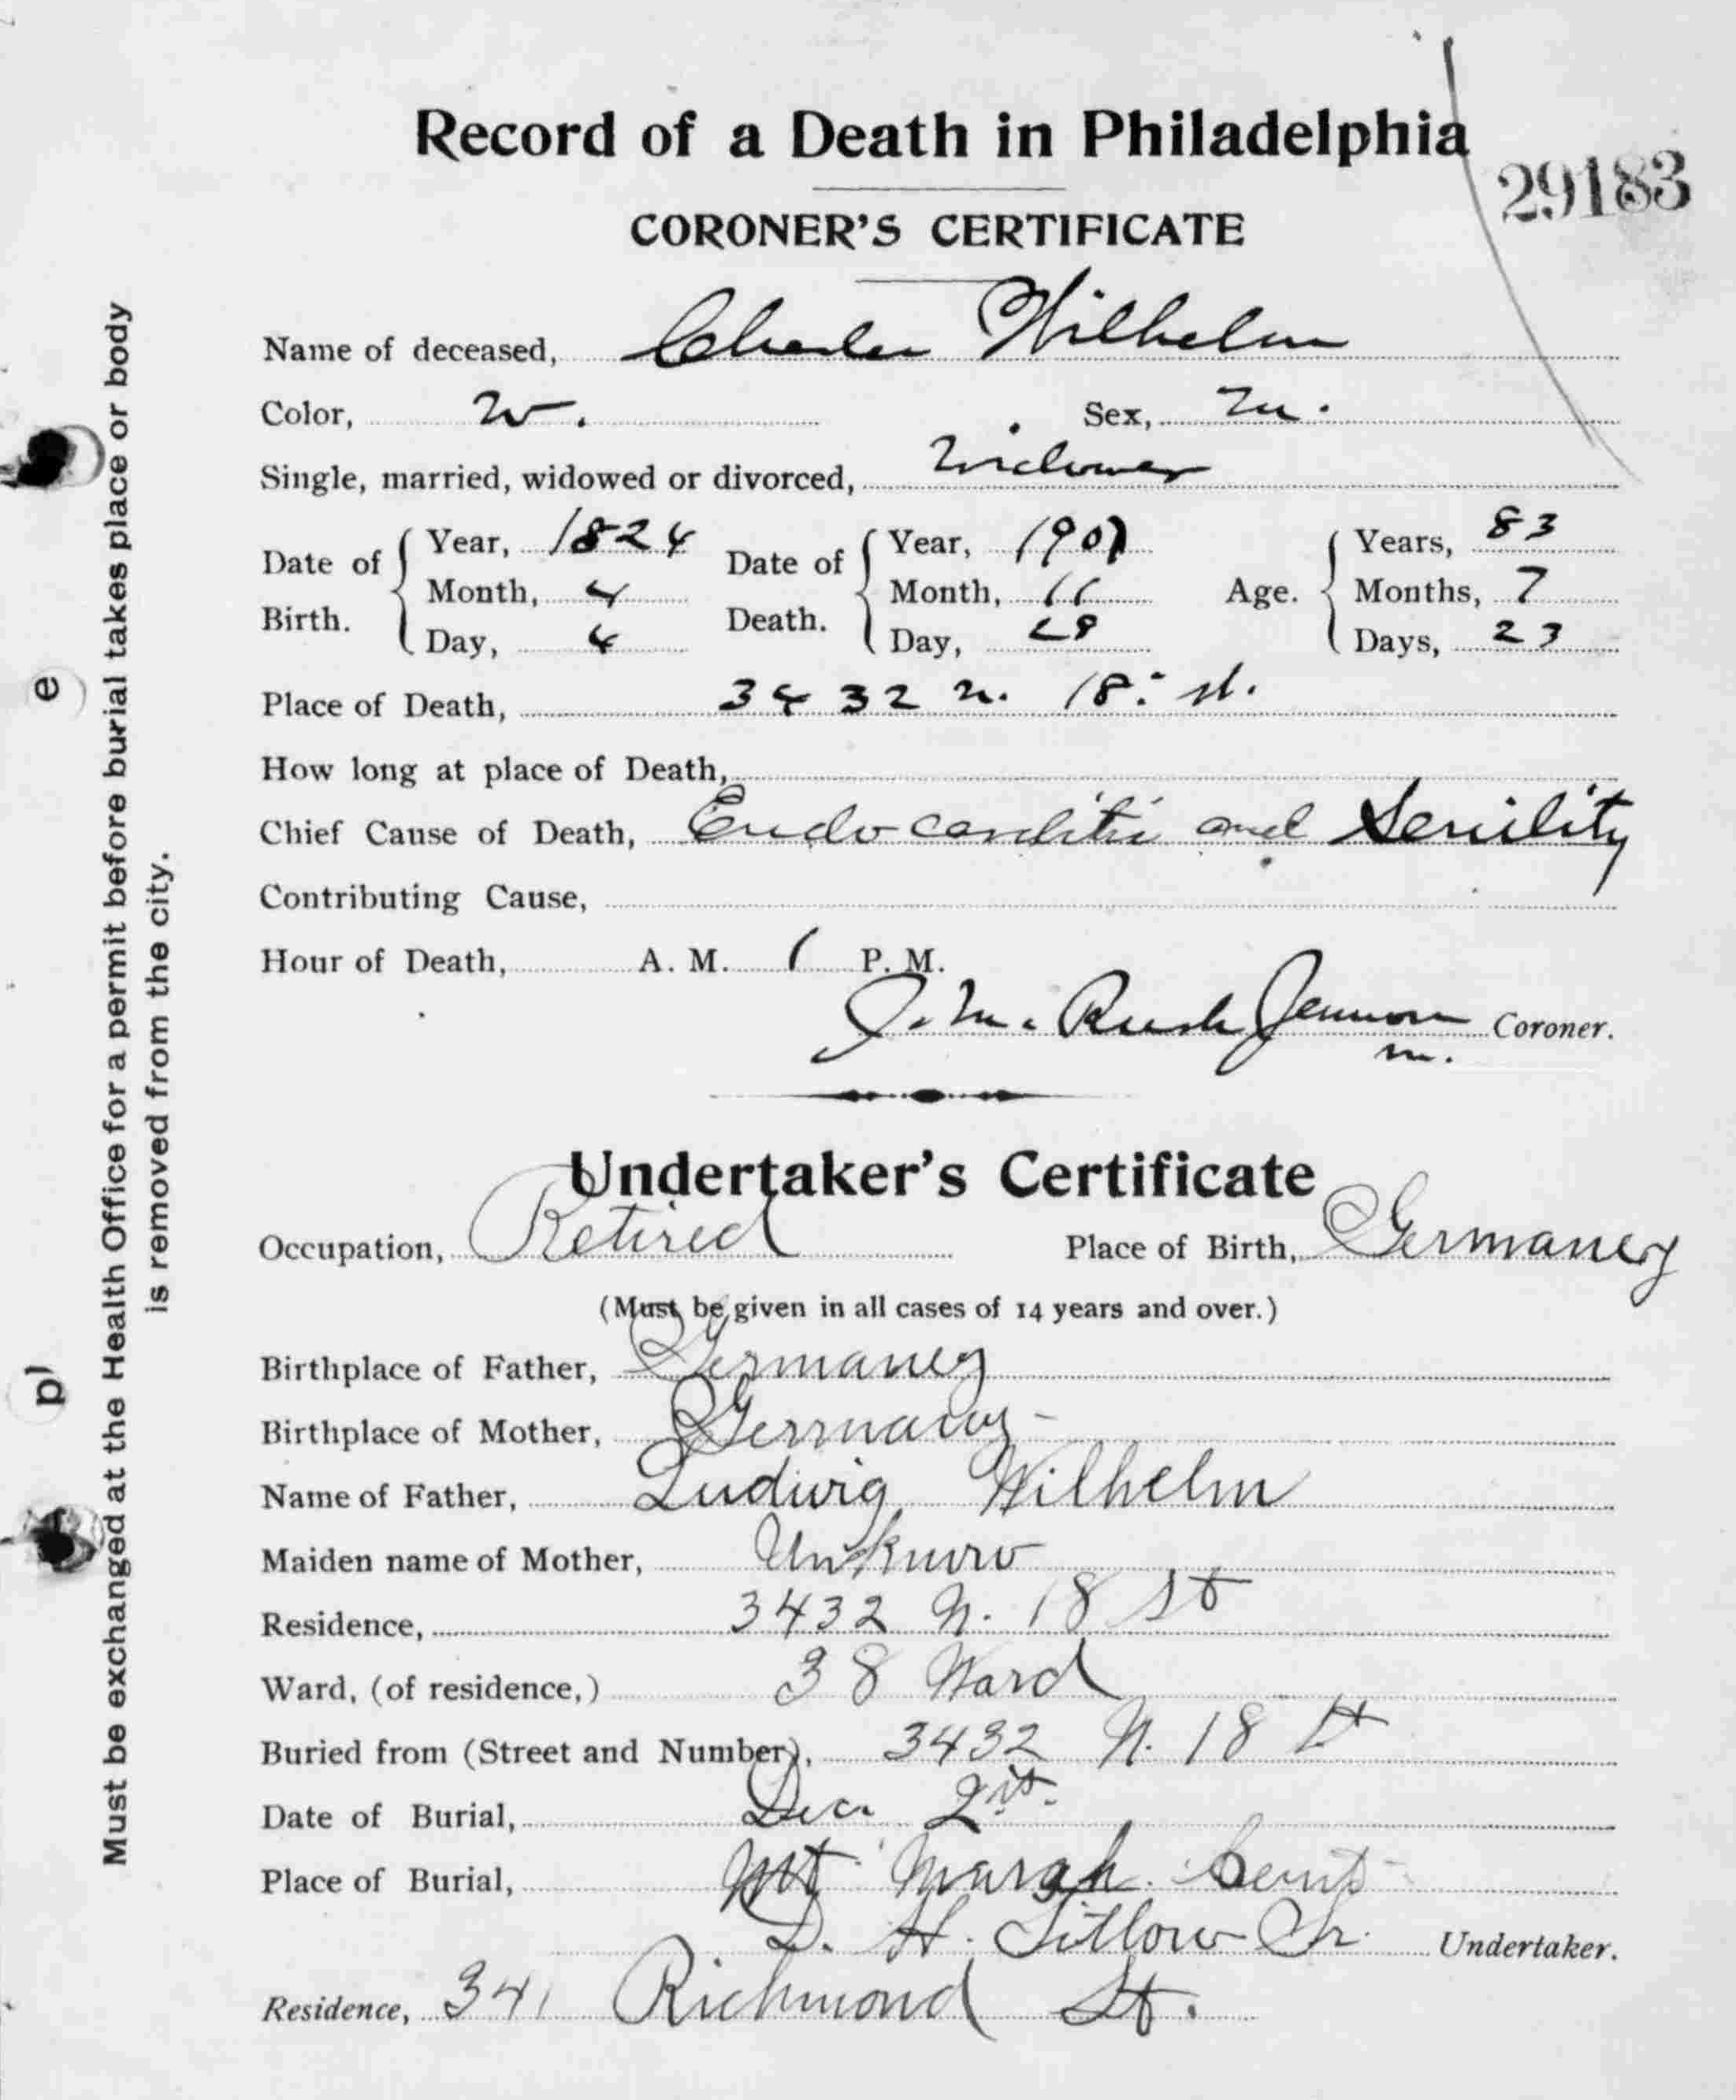 Record of a Death in Philadelphia
29183
CORONER'S CERTIFICATE
Name of deceased, Charles Wilhelm
Color, W. Sex, M.
Single, married, widowed or divorced, Widower
Date of Birth. Year, 1824 Month, 4 Day, 4
Date of Death. Year, 1907 Month, 11 Day, 28
Age. Years, 83 Months, 7 Days, 23
Place of Death, 3432 N. 18: st.
How long at place of Death,
Chief Cause of Death, Endocarditis and Senility
Contributing Cause,
Hour of Death, A. M. 1 P. M.
J. M. Rush Jermon Coroner.
m.
Undertaker's Certificate
Occupation, Retired Place of Birth, Germaney
(Must be given in all cases of 14 years and over.)
Birthplace of Father, Germaney
Birthplace of Mother, Germany
Name of Father, Ludwig Wilhelm
Maiden name of Mother, Unknow
Residence, 3432 N. 18 St
Ward, (of residence,) 38 Ward
Buried from (Street and Number), 3432 N. 18 St
Date of Burial, Dec 2
Place of Burial, Mt
D. H. Undertaker.
Residence, 341 Richmond St.
Must be exchanged at the Health Office for a permit before burial takes place or body
is removed from the city.